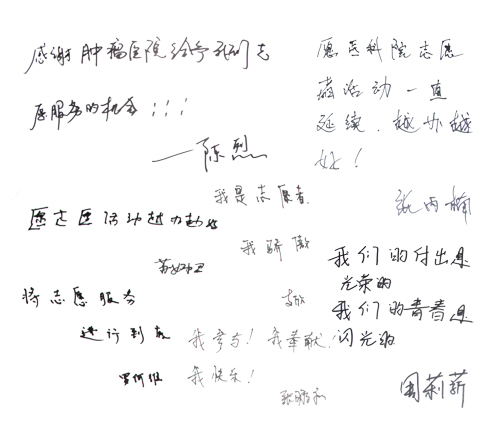 感谢肿瘤医院给予我们志
愿服务的机会!!!
——陈烈
愿医科院志愿
者活动一直
延续,越办越
好!
我是志愿者.
我骄傲
愿志医活动越办越好
我们的付出是
光荣的
我们的青春是
闪光的
周莉薪
将志愿服务
进行到底
我参与!我奉献!
我快乐!